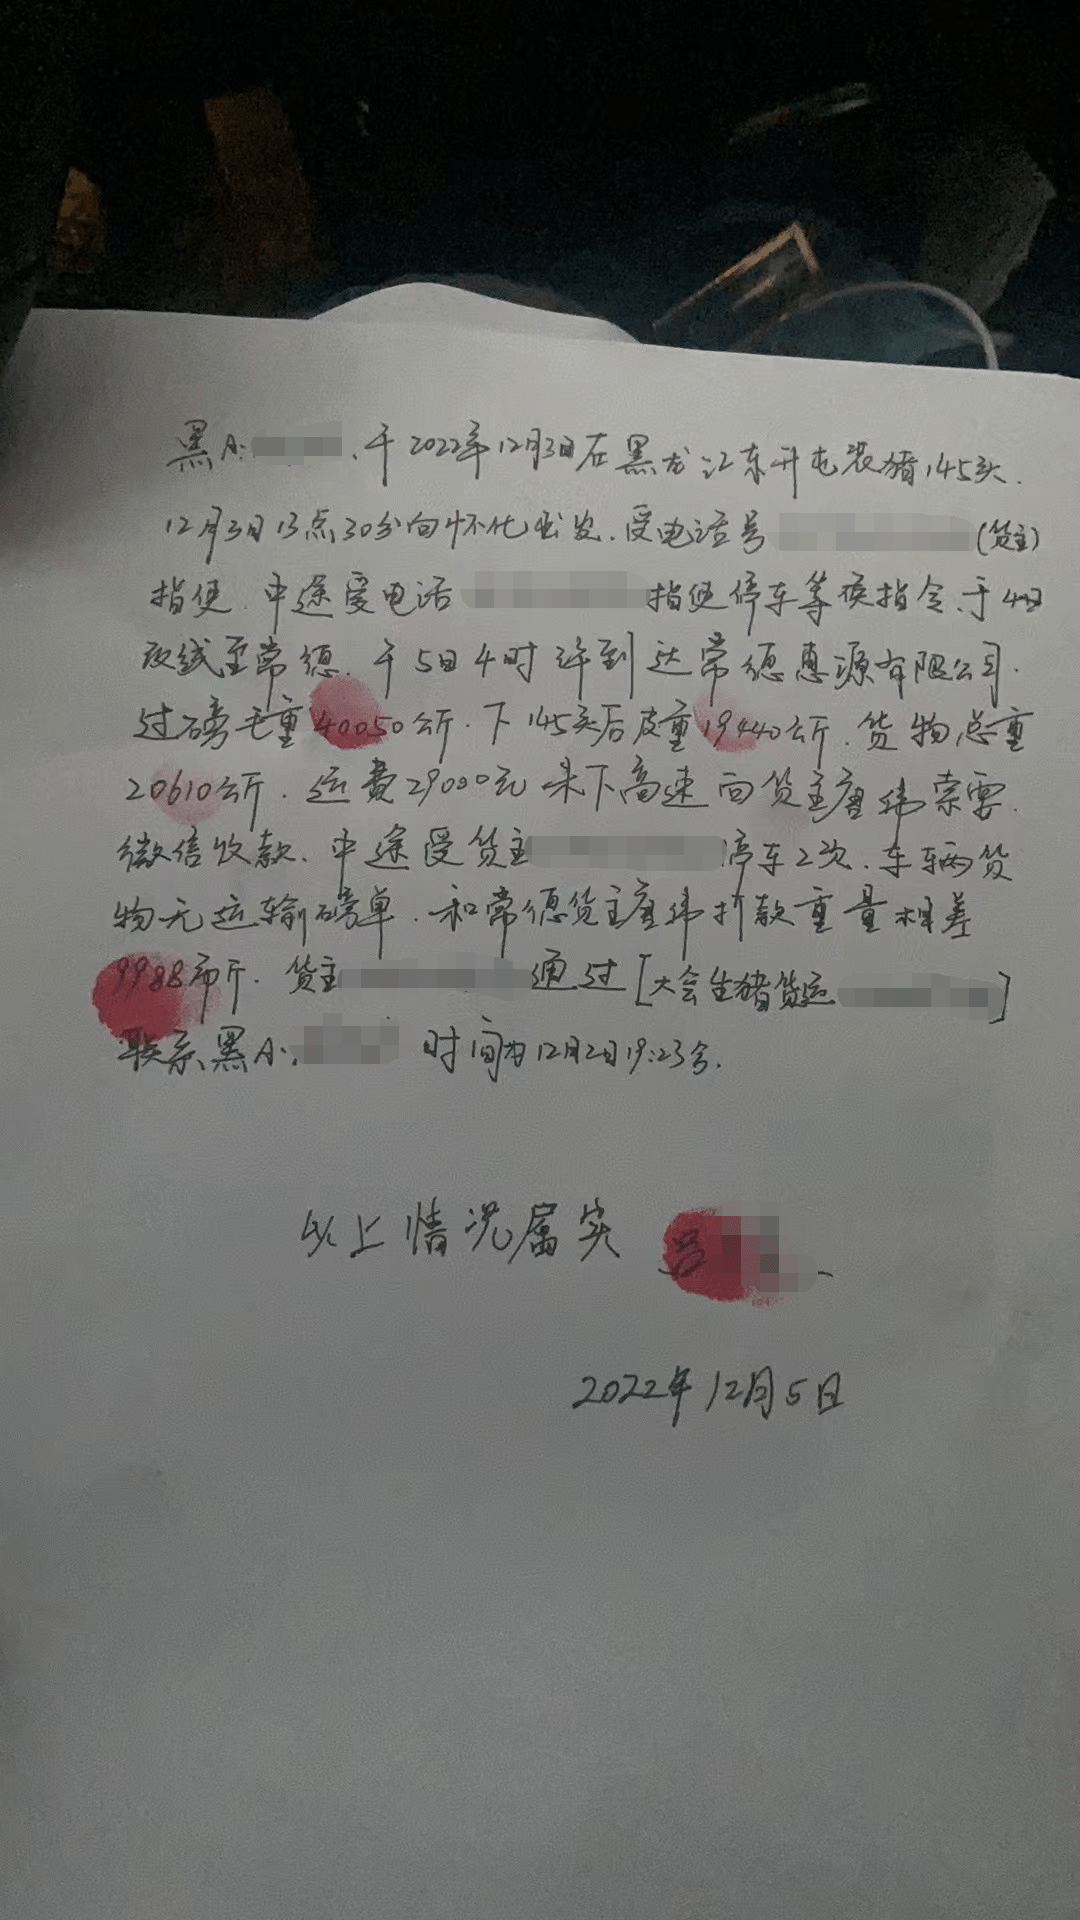 黑A:、于2022年12月3日在黑龙江东升屯装猪145头.
12月3日13点30分向怀化出发.受电话号(货主)
指使.中途受电话指使停车等候指令.于4日
夜线至常德.于5日4时许到达常德惠源有限公司.
过磅毛重40050公斤.下145头后皮重19440公斤.货物总重
20610公斤.运费29000元 未下高速向货主唐纬索要.
微信收款.中途受货主停车2次.车辆货
物无运输磅单.和常德货主唐纬打款重量相差
9988市斤.货主通过[大会生猪货运]
联系黑A:.时间为12月2日19:23分.
以上情况属实 吕
2022年12月5日